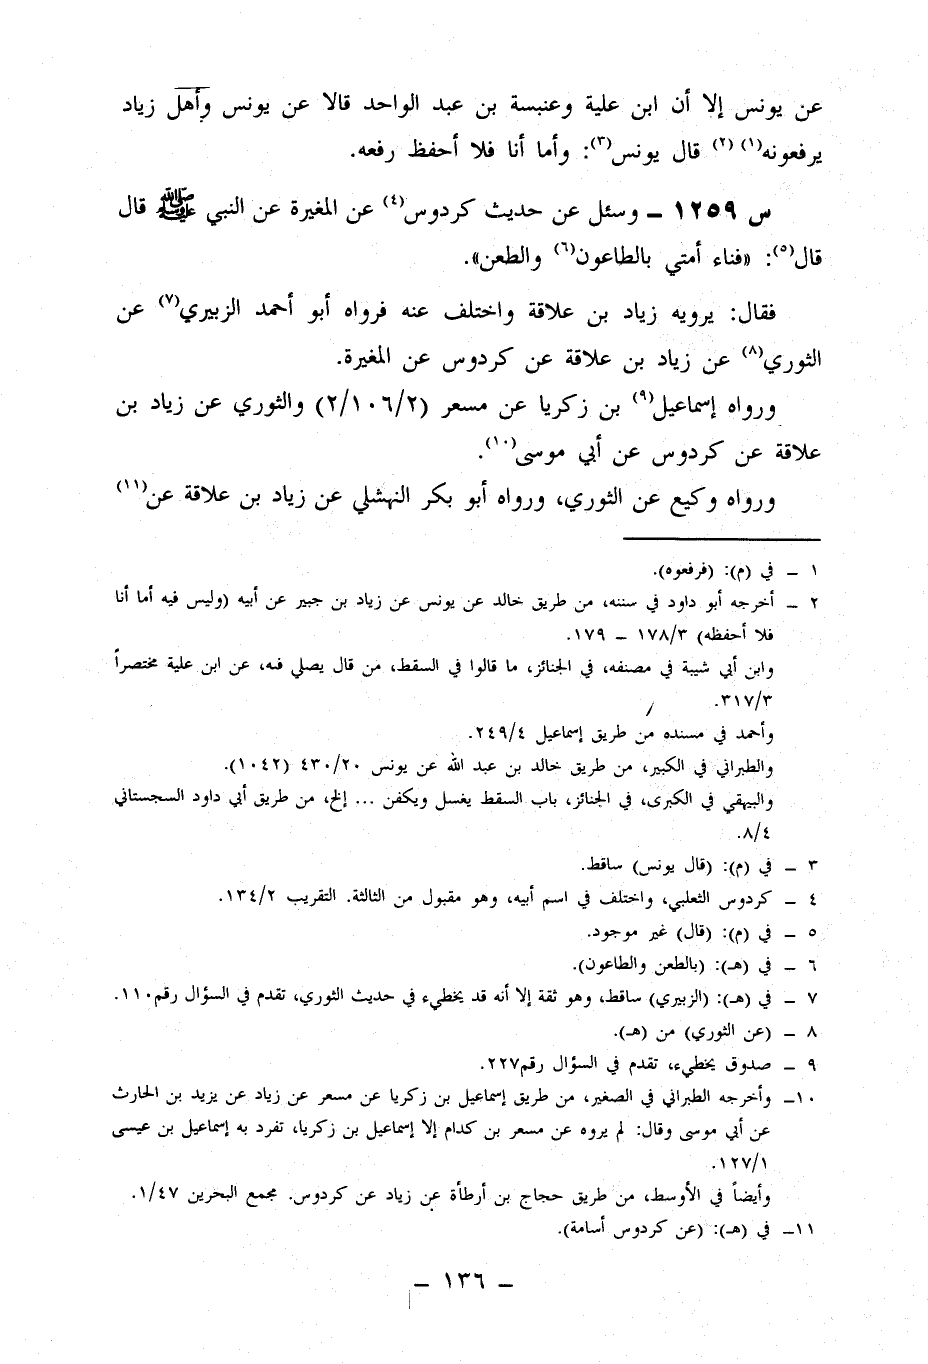 عن يونس إلا أن ابن علية وعنبسة بن عبد الواحد قالا عن يونس وأهل زياد
يرفعونه(١) (٢) قال يونس(٣): وأما أنا فلا أحفظ رفعه.
س ١٢٥٩ ــ وسئل عن حديث كردوس(٤) عن المغيرة عن النبي ﷺ قال
قال(٥): «فناء أمتي بالطاعون(٦) والطعن».
فقال: يرويه زياد بن علاقة واختلف عنه فرواه أبو أحمد الزبيري(٧) عن
الثوري(٨) عن زياد بن علاقة عن كردوس عن المغيرة.
ورواه إسماعيل(٩) بن زكريا عن مسعر (٢/١٠٦/٢) والثوري عن زياد بن
علاقة عن كردوس عن أبي موسى(١٠).
ورواه وكيع عن الثوري، ورواه أبو بكر النهشلي عن زياد بن علاقة عن(١١)
١ ــ في (م): (فرفعوه).
٢ ــ أخرجه أبو داود في سننه، من طريق خالد عن يونس عن زياد بن جبير عن أبيه (وليس فيه أما أنا
فلا أحفظه) ١٧٨/٣ ــ ١٧٩.
وابن أبي شيبة في مصنفه، في الجنائز، ما قالوا في السقط، من قال يصلي فيه، عن ابن علية مختصراً
٣١٧/٣.
وأحمد في مسنده من طريق إسماعيل ٢٤٩/٤.
والطبراني في الكبير، من طريق خالد بن عبد الله عن يونس ٤٣٠/٢٠ (١٠٤٢).
والبيهقي في الكبرى، في الجنائز، باب السقط يغسل ويكفن ... إلخ، من طريق أبي داود السجستاني
٨/٤.
٣ ــ في (م): (قال يونس) ساقط.
٤ ــ كردوس الثعلبي، واختلف في اسم أبيه، وهو مقبول من الثالثة. التقريب ١٣٤/٢.
٥ ــ في (م): (قال) غير موجود.
٦ ــ في (هـ): (بالطعن والطاعون).
٧ ــ في (هـ): (الزبيري) ساقط، وهو ثقة إلا أنه قد يخطيء في حديث الثوري، تقدم في السؤال رقم١١٠.
٨ ــ (عن الثوري) من (هـ).
٩ ــ صدوق يخطيء، تقدم في السؤال رقم٢٢٧.
١٠ــ وأخرجه الطبراني في الصغير، من طريق إسماعيل بن زكريا عن مسعر عن زياد عن يزيد بن الحارث
عن أبي موسى وقال: لم يروه عن مسعر بن كدام إلا إسماعيل بن زكريا، تفرد به إسماعيل بن عيسى
١٢٧/١.
وأيضاً في الأوسط، من طريق حجاج بن أرطأة عن زياد عن كردوس. مجمع البحرين ١/٤٧.
١١ــ في (هـ): (عن كردوس أسامة).
ــ ١٣٦ ــ